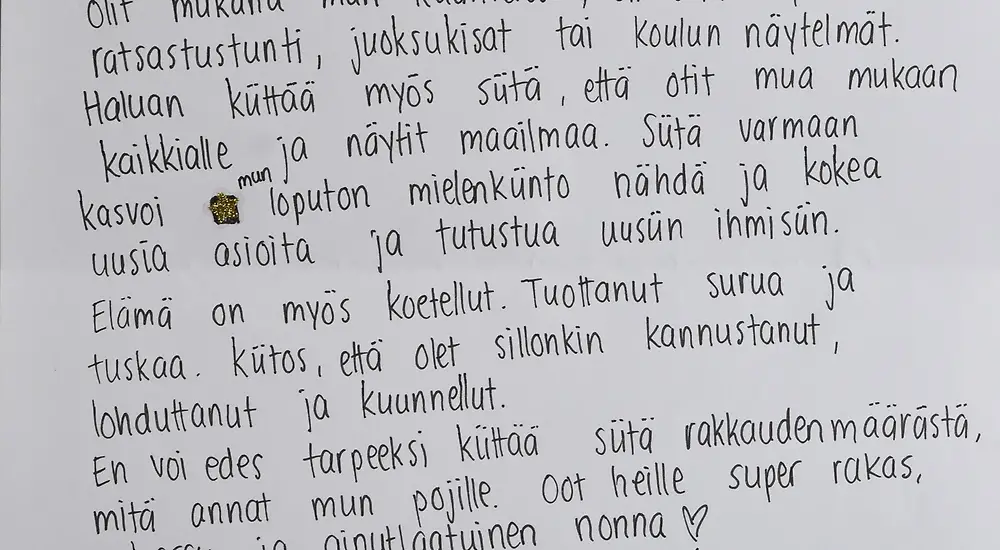 Olit mukana mun
ratsastustunti, juoksukisat tai koulun näytelmät.
Haluan kiittää myös siitä, että otit mua mukaan
kaikkialle ja näytit maailmaa. Siitä varmaan
kasvoi mun loputon mielenkiinto nähdä ja kokea
uusia asioita ja tutustua uusiin ihmisiin.
Elämä on myös koetellut. Tuottanut surua ja
tuskaa. Kiitos, että olet silloinkin kannustanut,
lohduttanut ja kuunnellut.
En voi edes tarpeeksi kiittää siitä rakkauden määrästä,
mitä annat mun pojille. Oot heille super rakas,
ja ainutlaatuinen nonna ♡